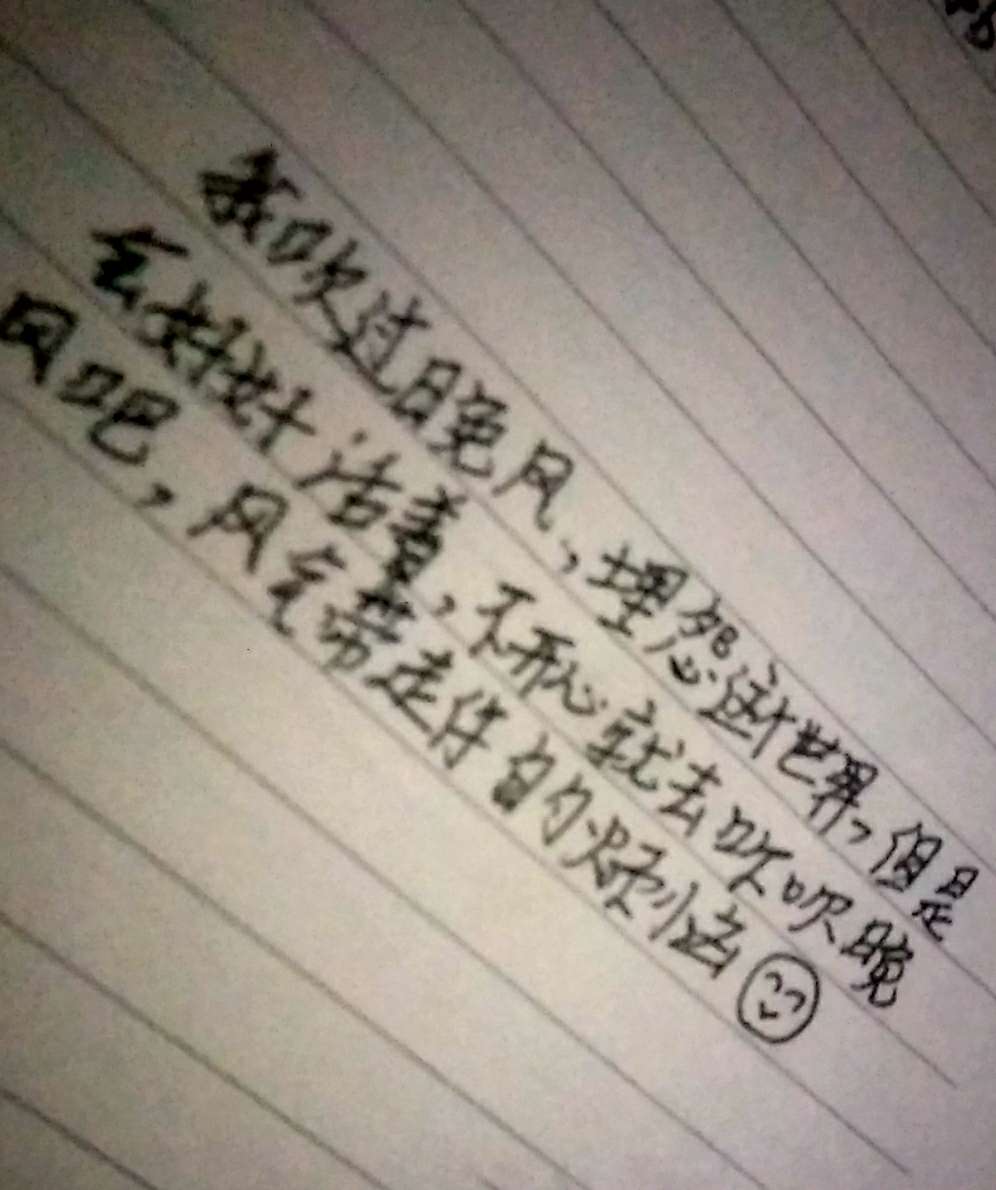 我吹过晚风，埋怨这世界，但是
会好好活着，不开心就去吹吹晚
风吧，风会带走你的烦恼